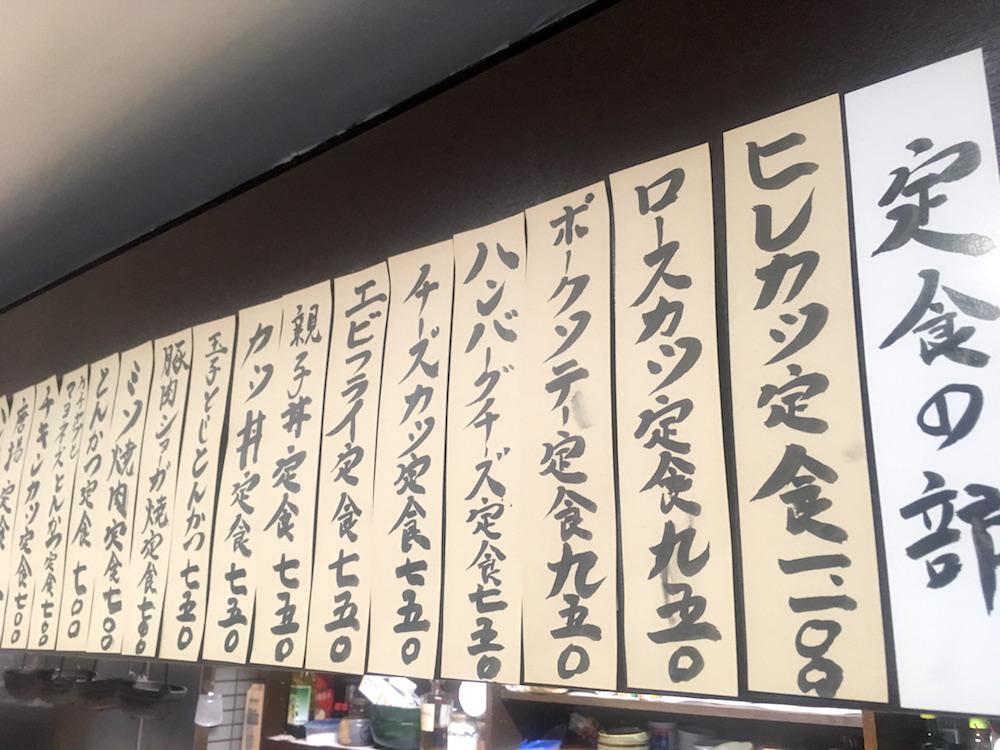 定食の部
ヒレカツ定食一、一〇〇
ロースカツ定食九五〇
ポークソテー定食九五〇
ハンバーグチーズ定食七五〇
チーズカツ定食七五〇
エビフライ定食七五〇
親子丼定食七五〇
カツ丼定食七五〇
玉子とじとんかつ七五〇
豚肉ショウガ焼定食七五〇
ミソ焼肉定食七〇〇
とんかつ定食七〇〇
マヨネーズとんかつ定食七〇〇
チキンカツ定食七〇〇
唐揚定食